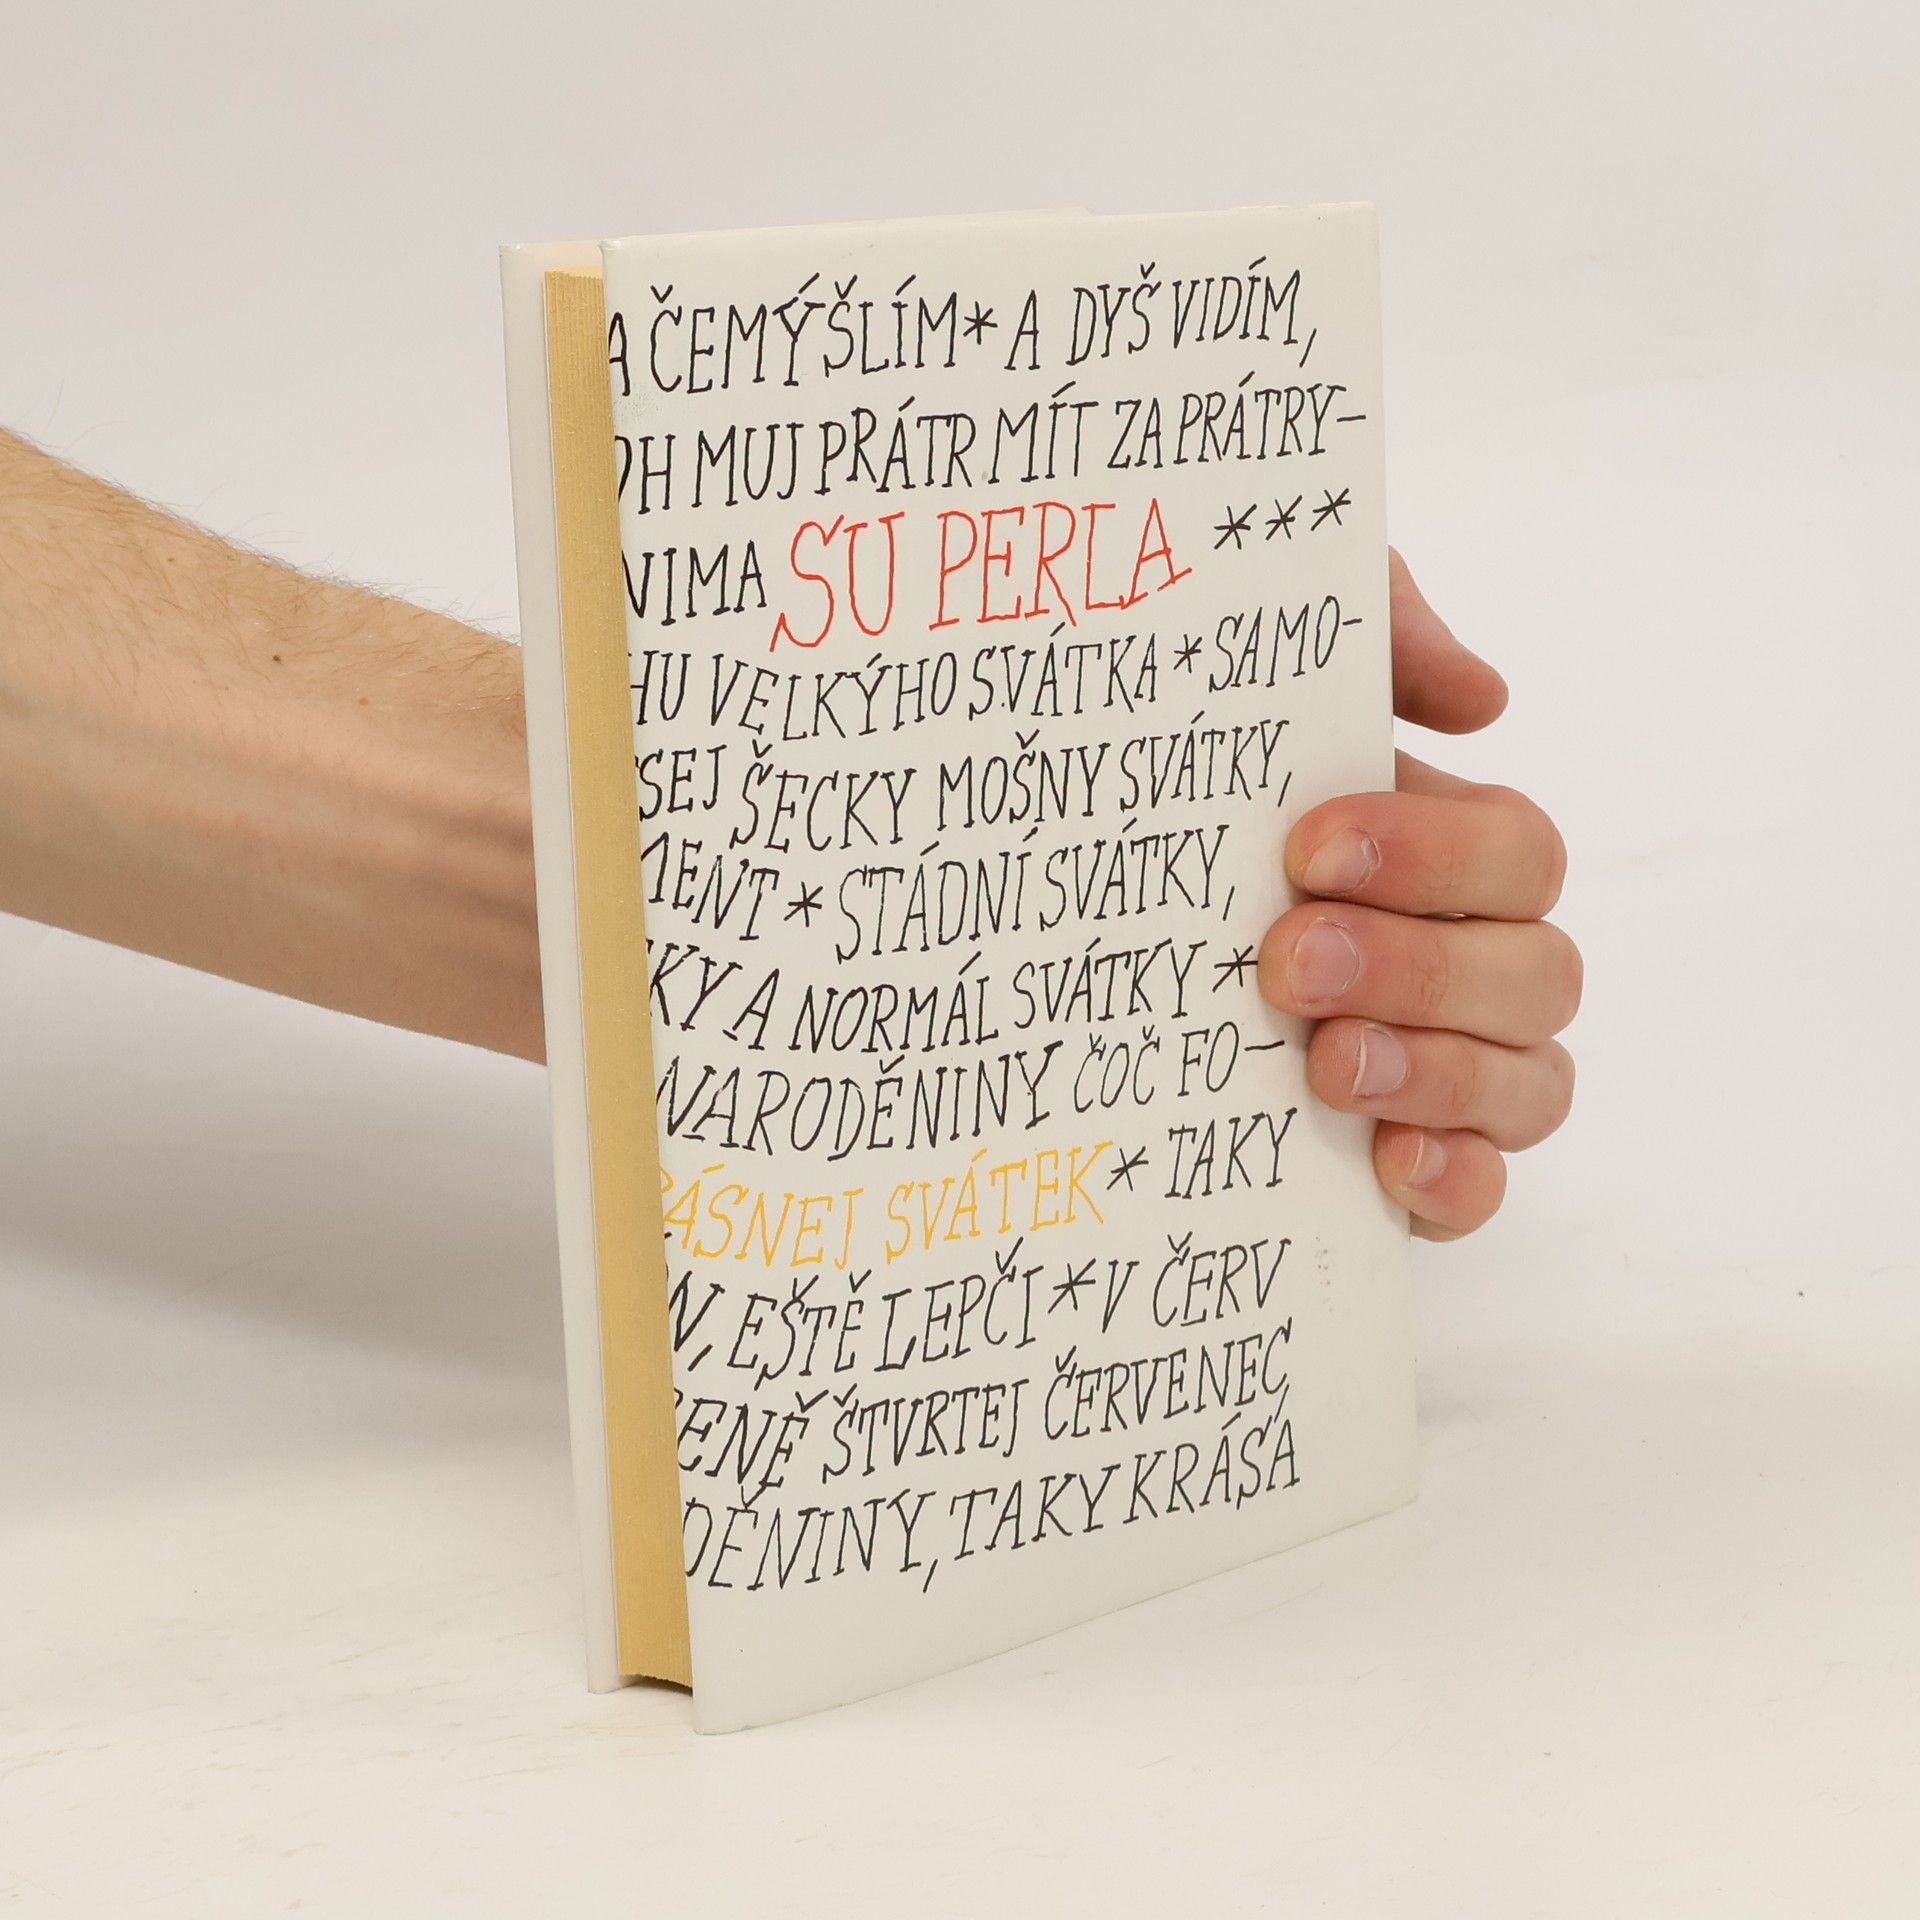 A ČEMÝŠLÍM * A DYŠ VIDÍM,
MUJ PRÁTR MÍT ZA PRÁTRY–
NIMA SU PERLA ***
HU VELKÝHO SVÁTKA * SAMO-
SEJ ŠECKY MOŠNY SVÁTKY,
MENT * STÁDNÍ SVÁTKY,
KY A NORMÁL SVÁTKY *
NARODĚNINY ČOČ FO–
ÁSNEJ SVÁTEK * TAKY
N, EŠTĚ LEPČI * V ČERV
ENĚ ŠTVRTEJ ČERVENEC,
DĚNINY, TAKY KRÁSA